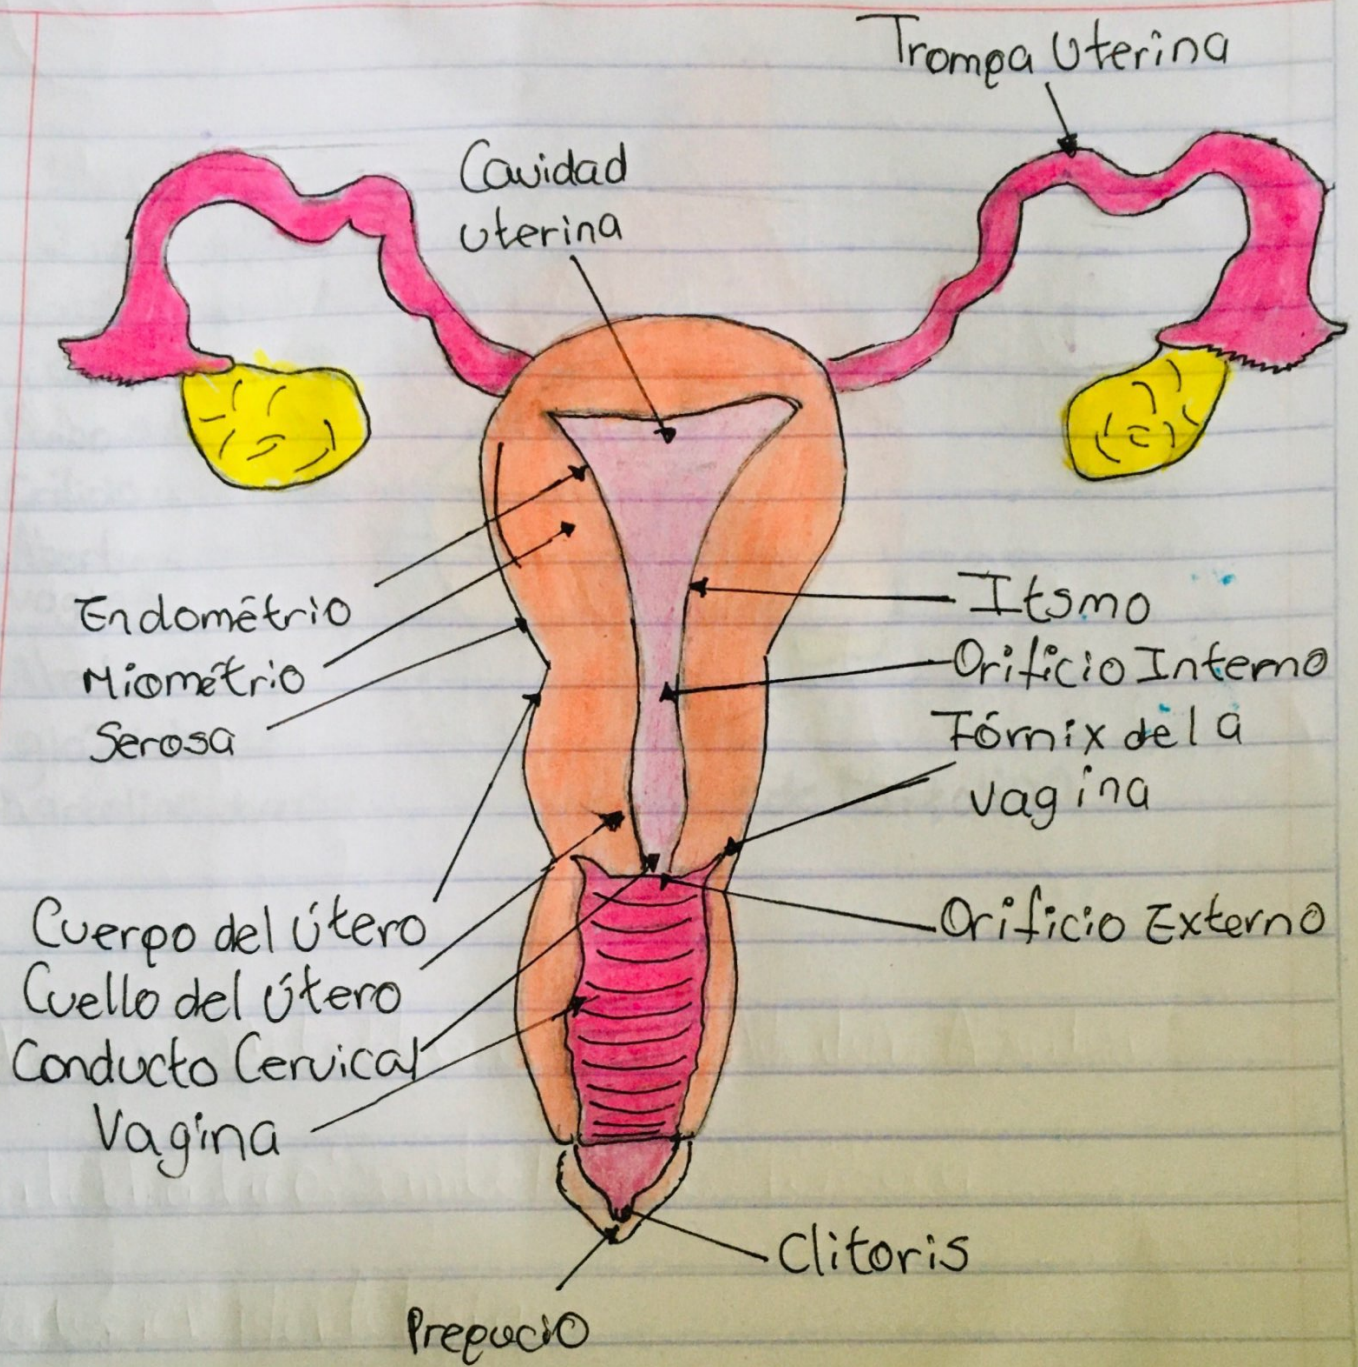 Trompa Uterina
Cavidad
uterina
Endométrio
Miométrio
Serosa
Itsmo
Orificio Interno
Fórnix de la
vagina
Cuerpo del Útero
Cuello del Útero
Conducto Cervical
Vagina
Orificio Externo
Clitoris
Prepucio